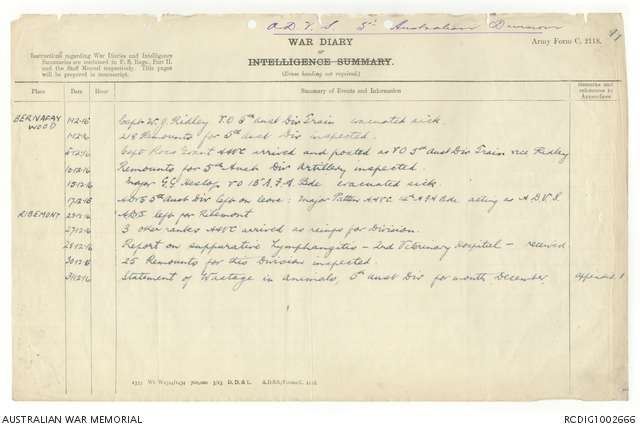 A.D.V.S. 5th Australian Division
WAR DIARY
or
INTELLIGENCE SUMMARY.
(Erase heading not required.)
Army Form C. 2118.
Instructions regarding War Diaries and Intelligence
Summaries are contained in F. S. Regs., Part II.
and the Staff Manual respectively. Title pages
will be prepared in manuscript.
Place Date Hour Summary of Events and Information Remarks and references to Appendices
BERNAFAY WOOD 1/12/16 Capt W.J. Ridley VO 5th Aust Div Train evacuated sick.
218 Remounts for 5th Aust Div inspected.
5/12/16 Capt Ross Grant AAVC arrived and posted as VO 5th Aust Div Train vice Ridley
10/12/16 Remounts for 5th Aust Div Artillery inspected.
15/12/16 Major G.G. Heslop VO 15 A.F.A. Bde evacuated sick
17/12/16 ADVS 5th Aust Div left on leave: Major Patten AAVC AFA Bde acting as A D V S
RIBEMONT 23/12/16 ADVS left for Ribemont
27/12/16 3 other ranks AAVC arrived as reinfs for Division.
28/12/16 Report on suppurative Lymphangitis - 2nd Veterinary Hospital - received
30/12/16 25 Remounts for this Division inspected.
31/12/16 Statement of Wastage in animals, 5th Aust Div for month December. Appended 1
D. D. & L. A.D.S.S./Forms/C. 2118.
AUSTRALIAN WAR MEMORIAL
RCDIG1002666